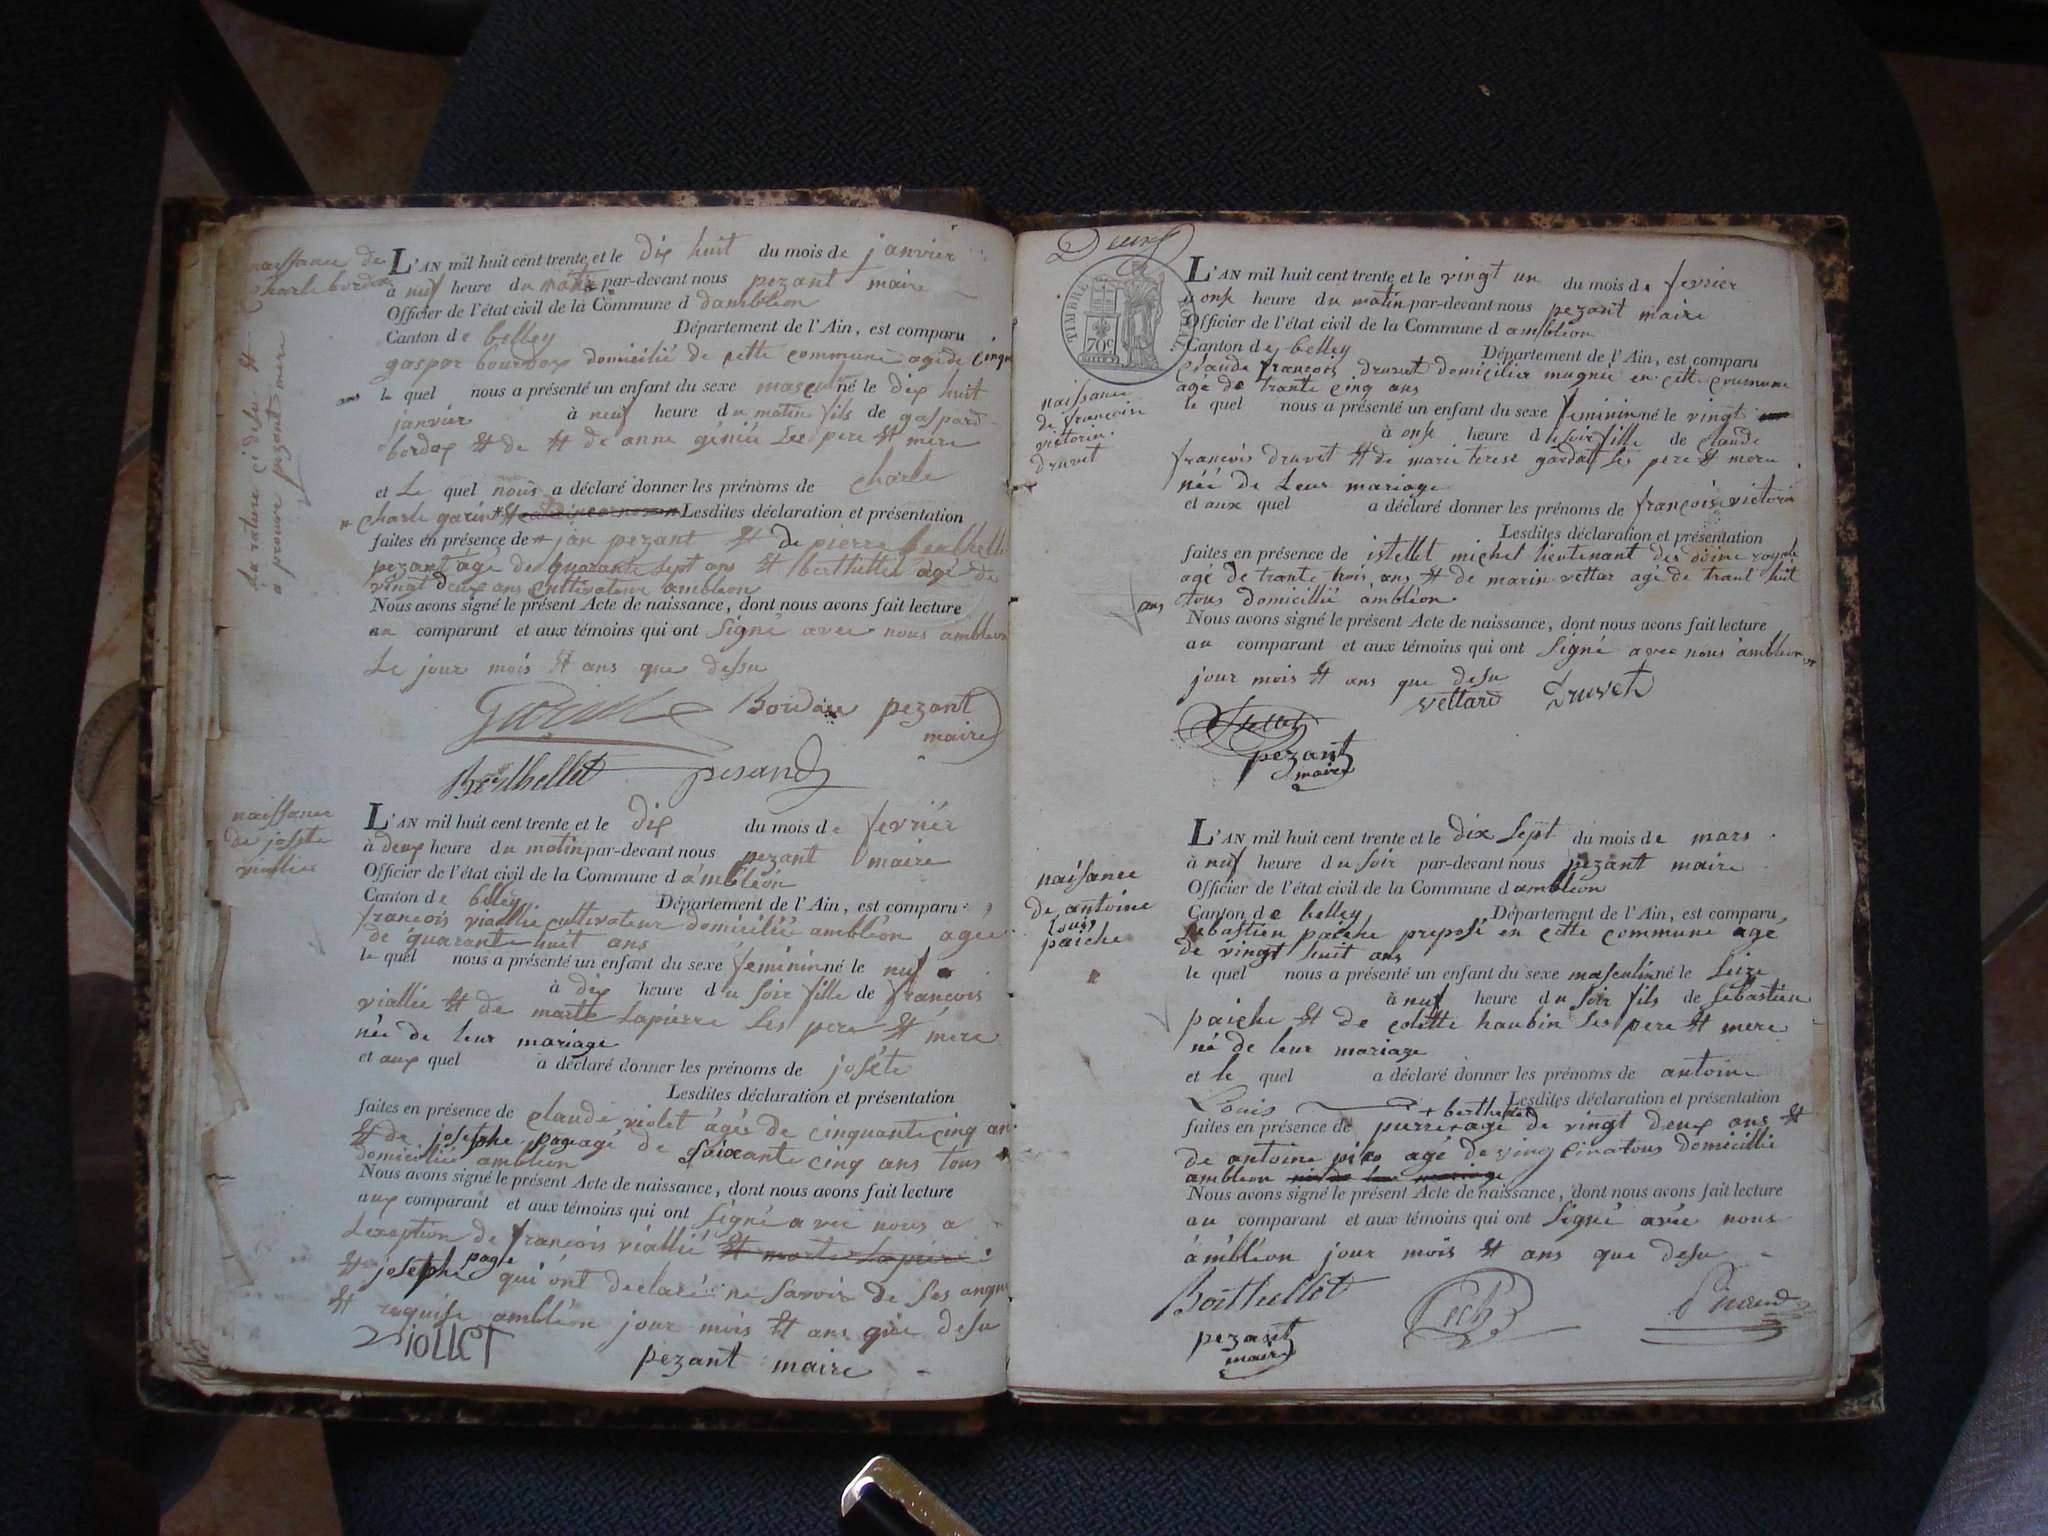 naissance de
charle bordox
L'AN mil huit cent trente et le dix huit du mois de janvier
à neuf heure du matin par-devant nous pezant maire
Officier de l'état civil de la Commune d dambléon
Canton de belley Département de l'Ain, est comparu
gaspar bourdox domicilié de cette commune agé de cinqu
ans le quel nous a présenté un enfant du sexe masculin né le dix huit
janvier à neuf heure du matin fils de gaspard
bordox et de et de anne géniée les pere et mere
et le quel nous a déclaré donner les prénoms de charle
charle garin Lesdites déclaration et présentation
faites en présence de jan pezant et de pierre berthellet
pezant agé de quarante sept ans et berthellet agé de
vingt deux ans cultivateur ambléon
Nous avons signé le présent Acte de naissance, dont nous avons fait lecture
au comparant et aux témoins qui ont signé avec nous ambléon
le jour mois et ans que dessu
la rature ci desu et
a prouvé pezant mere
Bordose pezant
maire
Berthellet pesand
naissance
de joséte
viallie
L'AN mil huit cent trente et le dix du mois de fevriér
à deux heure du matin par-devant nous pezant maire
Officier de l'état civil de la Commune d ambléon
Canton de belley Département de l'Ain, est comparu
francois viallie cultivateur domicilié ambléon agée
de quarante huit ans
le quel nous a présenté un enfant du sexe féminin né le nuf
à dix heure du soir fille de francois
viallie et de marte lapierre les pere et mere
née de leur mariage
et aux quel a déclaré donner les prénoms de joséte
Lesdites déclaration et présentation
faites en présence de claude violet agée de cinquante cinq ans
et de josephe page agé de soixante cinq ans tous
domicilié ambléon
Nous avons signé le présent Acte de naissance, dont nous avons fait lecture
aux comparant et aux témoins qui ont signé avec nous a
lexeption de francois viallié et marte lapiere
et josephe page qui ont declaré ne savoir de ses
et requise ambléon jour mois et ans que desu
VIOLLET
pezant maire
Deux
TIMBRE ROYAL
70c
naissance
de francoise
victorin
druvet
L'AN mil huit cent trente et le vingt un du mois de fevrier
à onse heure du matin par-devant nous pezant maire
Officier de l'état civil de la Commune d ambléon
Canton de belley Département de l'Ain, est comparu
claude francois druvet domicilier mugnié en cette commune
agé de trante cinq ans
le quel nous a présenté un enfant du sexe feminin né le vingt
à onse heure du soir fille de claude
francois druvet et de marie terese gardat les pere et mere
néé de leur mariage
et aux quel a déclaré donner les prénoms de francoise victorin
Lesdites déclaration et présentation
faites en présence de istellet michel lieutenant des royale
agé de trante trois ans et de marin vettar agé de trant huit
ans tous domicillié ambléon
Nous avons signé le présent Acte de naissance, dont nous avons fait lecture
au comparant et aux témoins qui ont signé avec nous ambléon
jour mois et ans que desu
vettard Druvet
pezant
maire
naisance
de antoine
louis
paiche
L'AN mil huit cent trente et le dix sept du mois de mars
à nuf heure du soir par-devant nous pezant maire
Officier de l'état civil de la Commune d ambléon
Canton de belley Département de l'Ain, est comparu
sebastien paiche preposé en cette commune agé
de vingt huit ans
le quel nous a présenté un enfant du sexe masculin né le seize
à nuf heure du soir fils de sebastien
paiche et de colette haubin les pere et mere
né de leur mariage
et le quel a déclaré donner les prénoms de antoine
Louis + berthellet Lesdites déclaration et présentation
faites en présence de pierre agé de vingt deux ans et
de antoine agé de tous domicillié
ambléon né de leur mariage
Nous avons signé le présent Acte de naissance, dont nous avons fait lecture
au comparant et aux témoins qui ont signé avéc nous
ambléon jour mois et ans que desu
Berthellet
pezant
maire